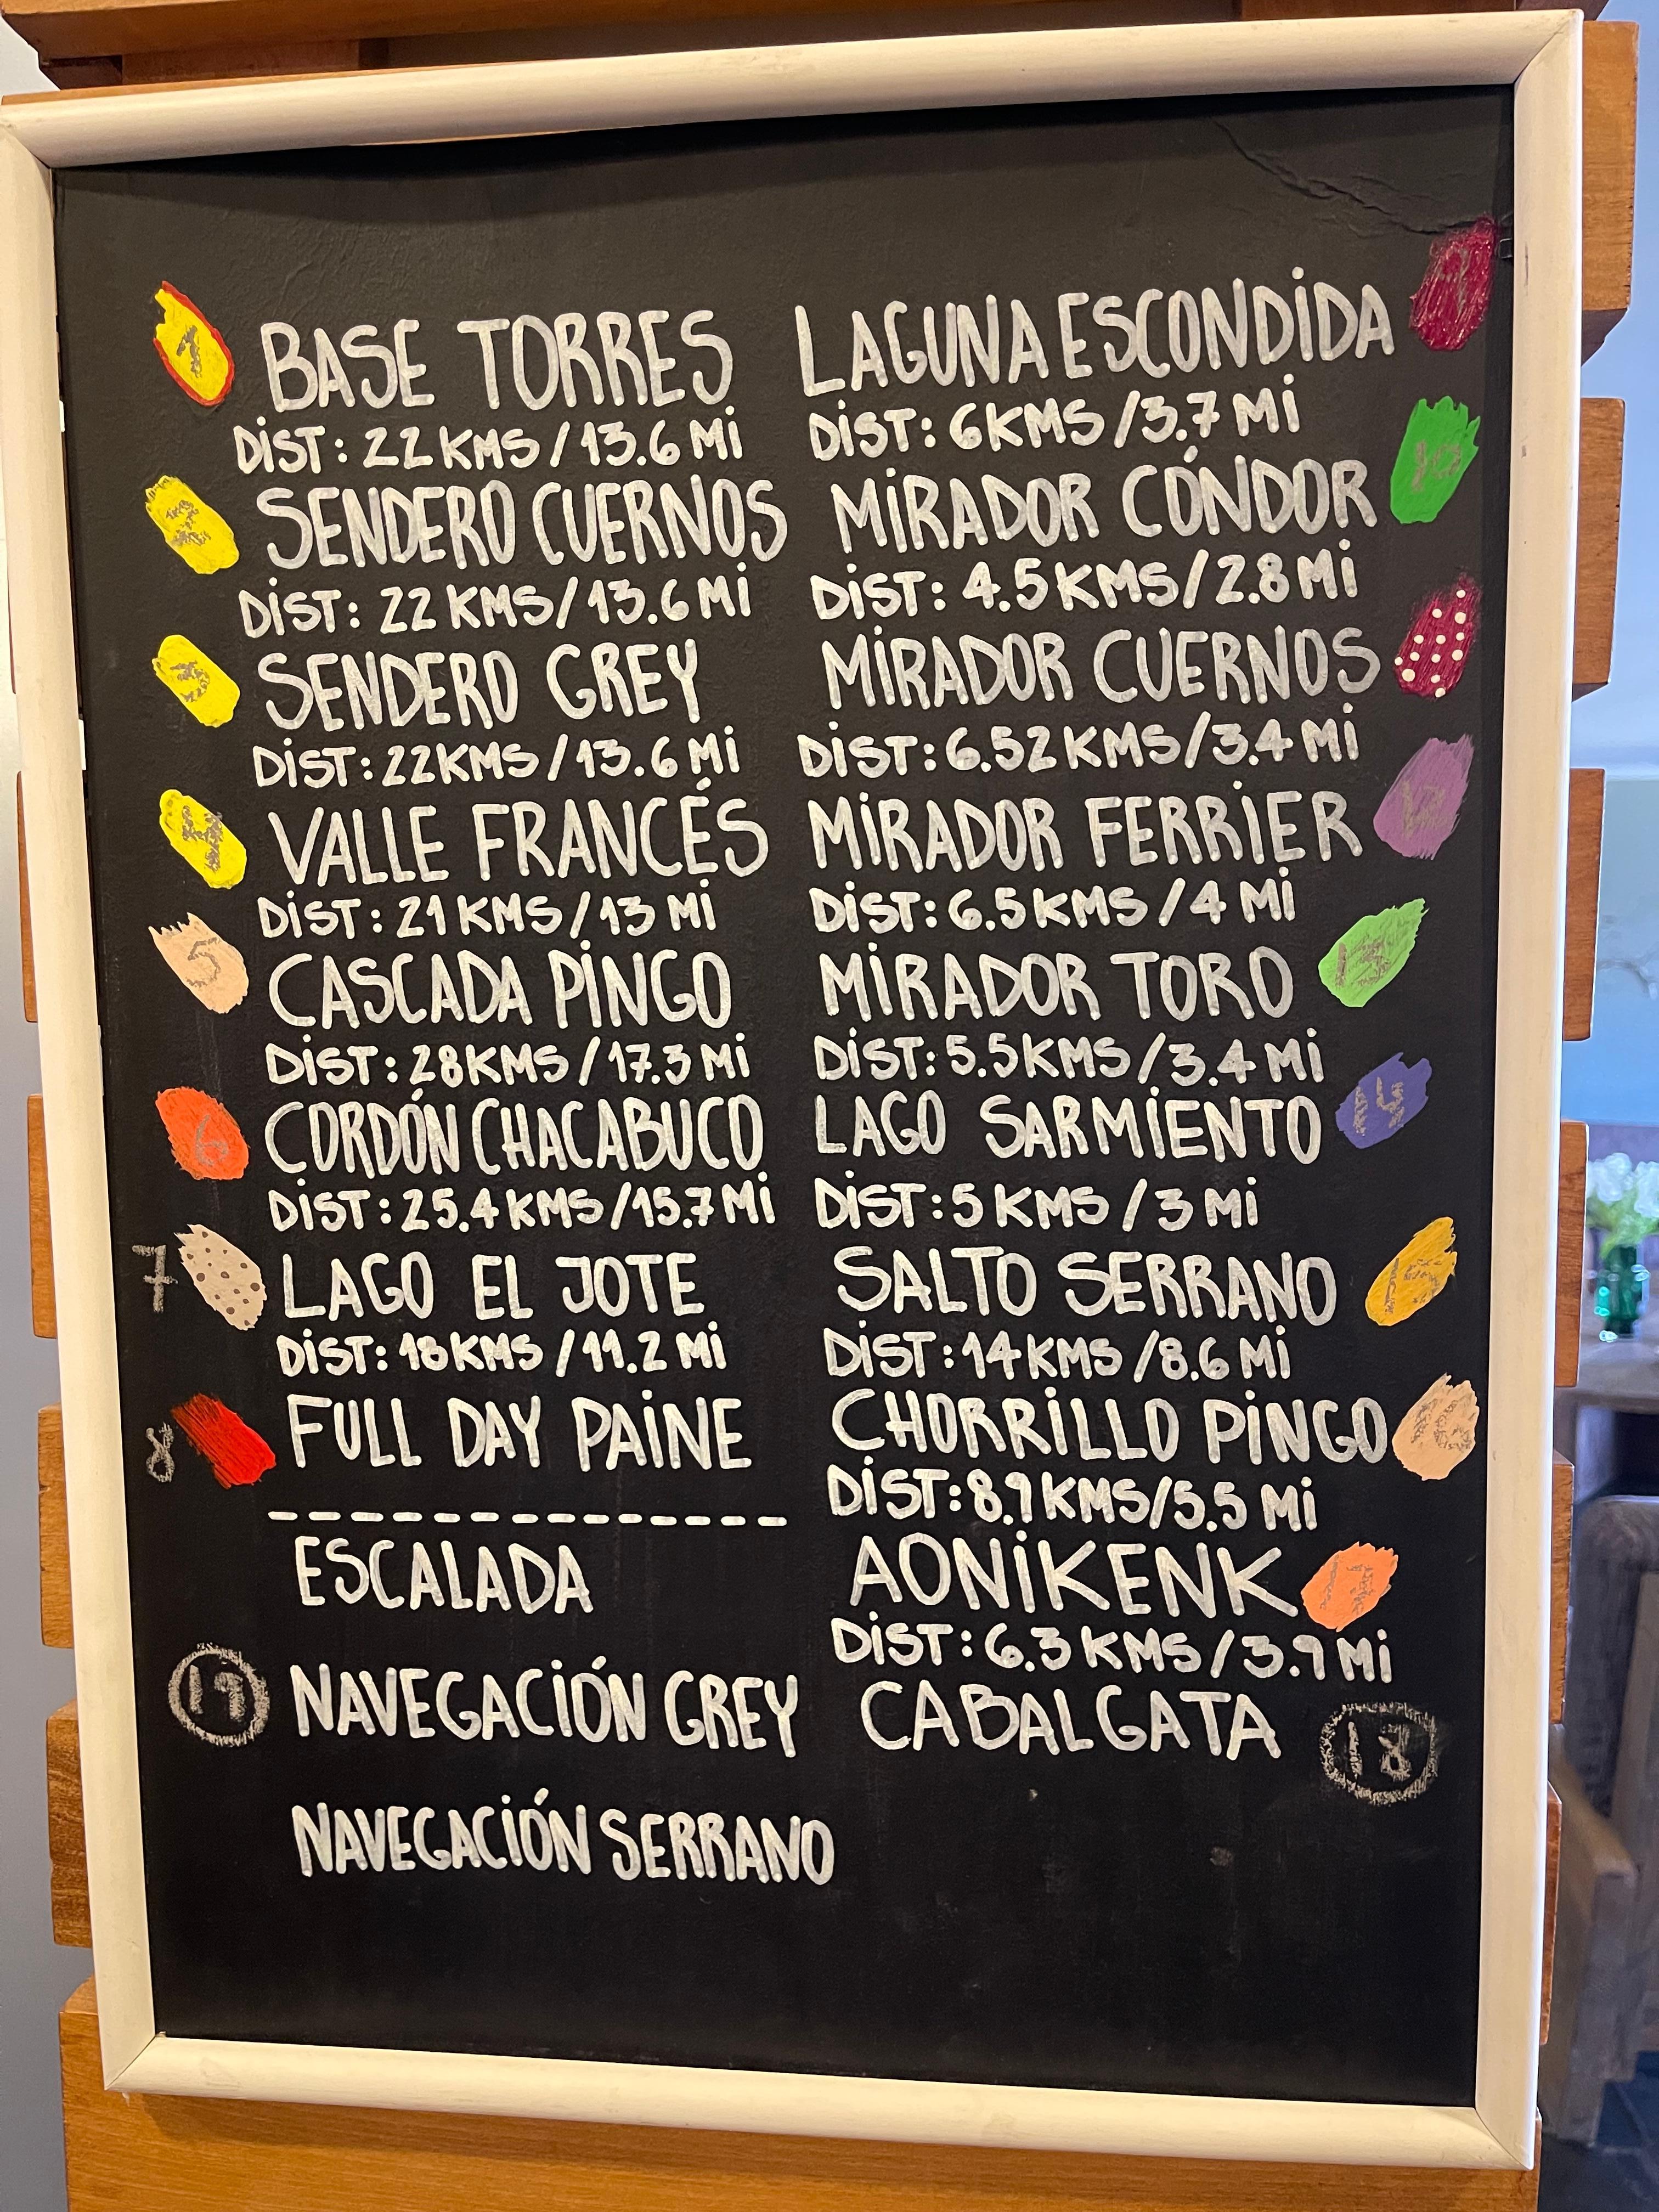 1 BASE TORRES
DIST: 22 KMS / 13.6 MI
2 SENDERO CUERNOS
DIST: 22 KMS / 13.6 MI
3 SENDERO GREY
DIST: 22KMS / 13.6 MI
4 VALLE FRANCÉS
DIST: 21 KMS / 13 MI
5 CASCADA PINGO
DIST: 28KMS / 17.3 MI
6 CORDÓN CHACABUCO
DIST: 25.4 KMS / 15.7 MI
7 LAGO EL JOTE
DIST: 18KMS / 11.2 MI
8 FULL DAY PAINE
ESCALADA
19 NAVEGACIÓN GREY
NAVEGACIÓN SERRANO
LAGUNA ESCONDIDA
DIST: 6KMS / 3.7 MI
MIRADOR CÓNDOR 10
DIST: 4.5KMS / 2.8 MI
MIRADOR CUERNOS
DIST: 6.52KMS / 3.4 MI
MIRADOR FERRIER 12
DIST: 6.5KMS / 4 MI
MIRADOR TORO 13
DIST: 5.5KMS / 3.4 MI
LAGO SARMIENTO 14
DIST: 5 KMS / 3 MI
SALTO SERRANO 15
DIST: 14KMS / 8.6 MI
CHORRILLO PINGO 16
DIST: 8.9KMS / 5.5 MI
AONIKENK 17
DIST: 6.3 KMS / 3.9 MI
CABALGATA 18